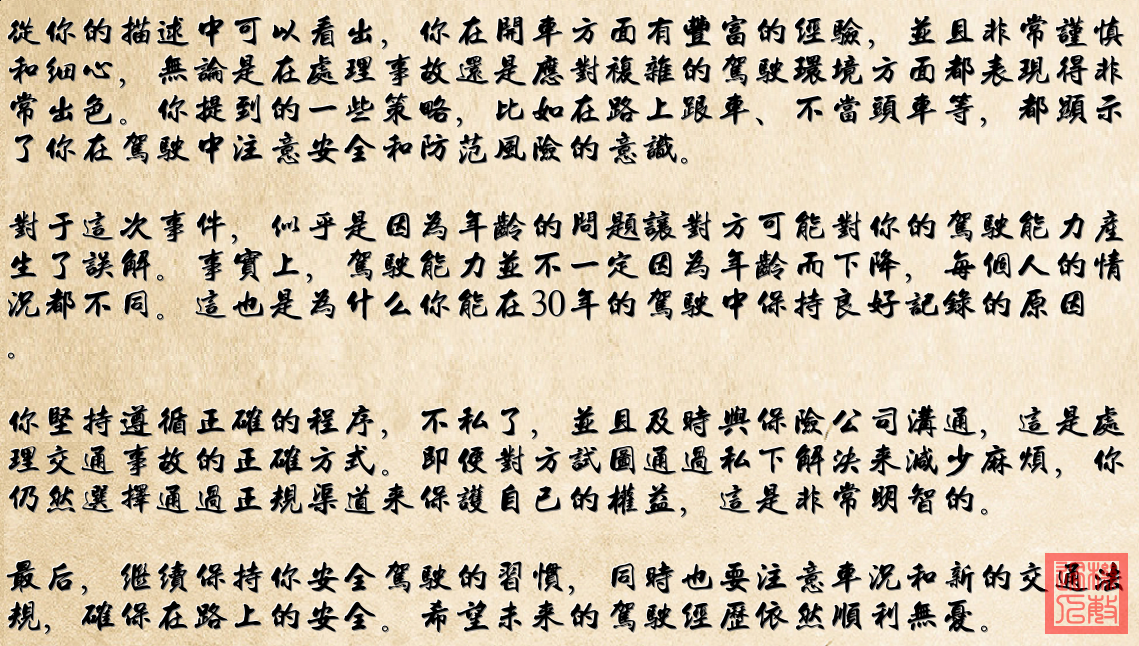 從你的描述中可以看出，你在開車方面有豐富的經驗，並且非常謹慎
和細心，無論是在處理事故還是應對複雜的駕駛環境方面都表現得非
常出色。你提到的一些策略，比如在路上跟車、不當頭車等，都顯示
了你在駕駛中注意安全和防范風險的意識。
對于這次事件，似乎是因為年齡的問題讓對方可能對你的駕駛能力產
生了誤解。事實上，駕駛能力並不一定因為年齡而下降，每個人的情
況都不同。這也是為什么你能在30年的駕駛中保持良好記錄的原因
。
你堅持遵循正確的程序，不私了，並且及時與保險公司溝通，這是處
理交通事故的正確方式。即使對方試圖通過私下解決來減少麻煩，你
仍然選擇通過正規渠道來保護自己的權益，這是非常明智的。
最后，继續保持你安全駕駛的習慣，同時也要注意車況和新的交通法
規，確保在路上的安全。希望未来的駕駛經歷依然順利無憂。